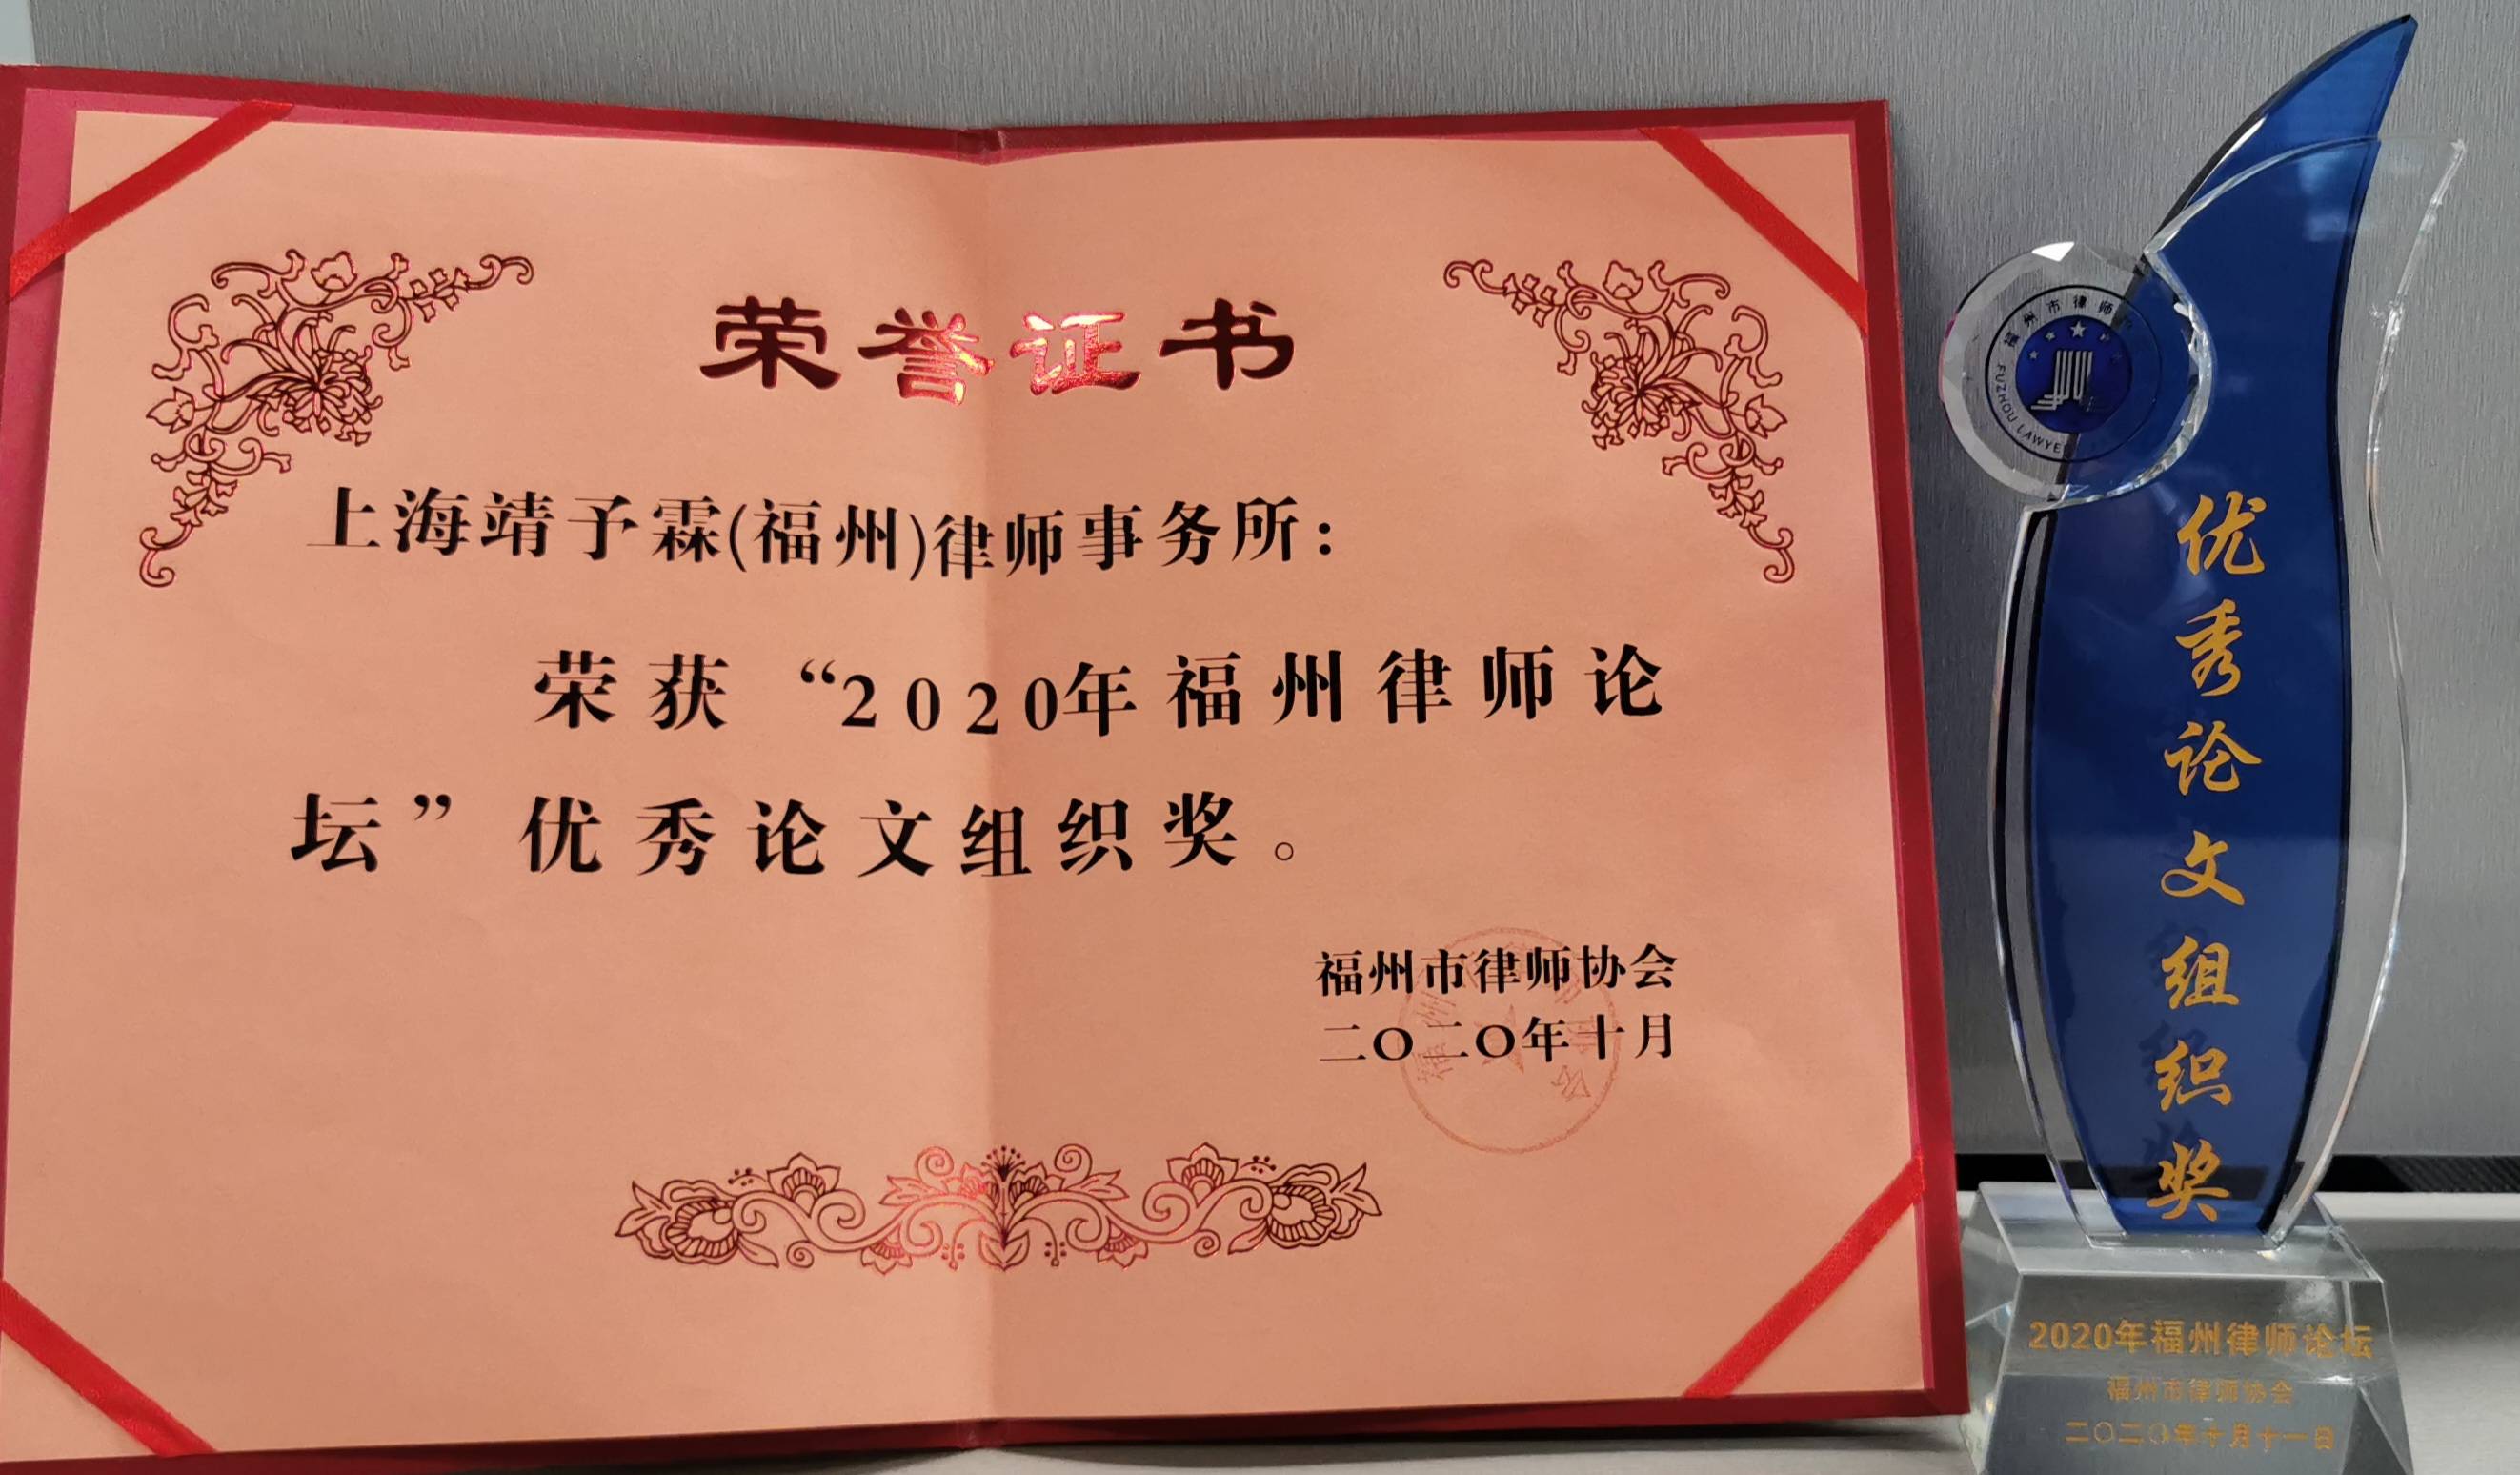 荣誉证书
上海靖予霖(福州)律师事务所：
荣获“2020年福州律师论
坛”优秀论文组织奖。
福州市律师协会
二〇二〇年十月
福州市律师
FUZHOU LAWYE
优秀论文组织奖
2020年福州律师论坛
福州市律师协会
二〇二〇年十月十一日